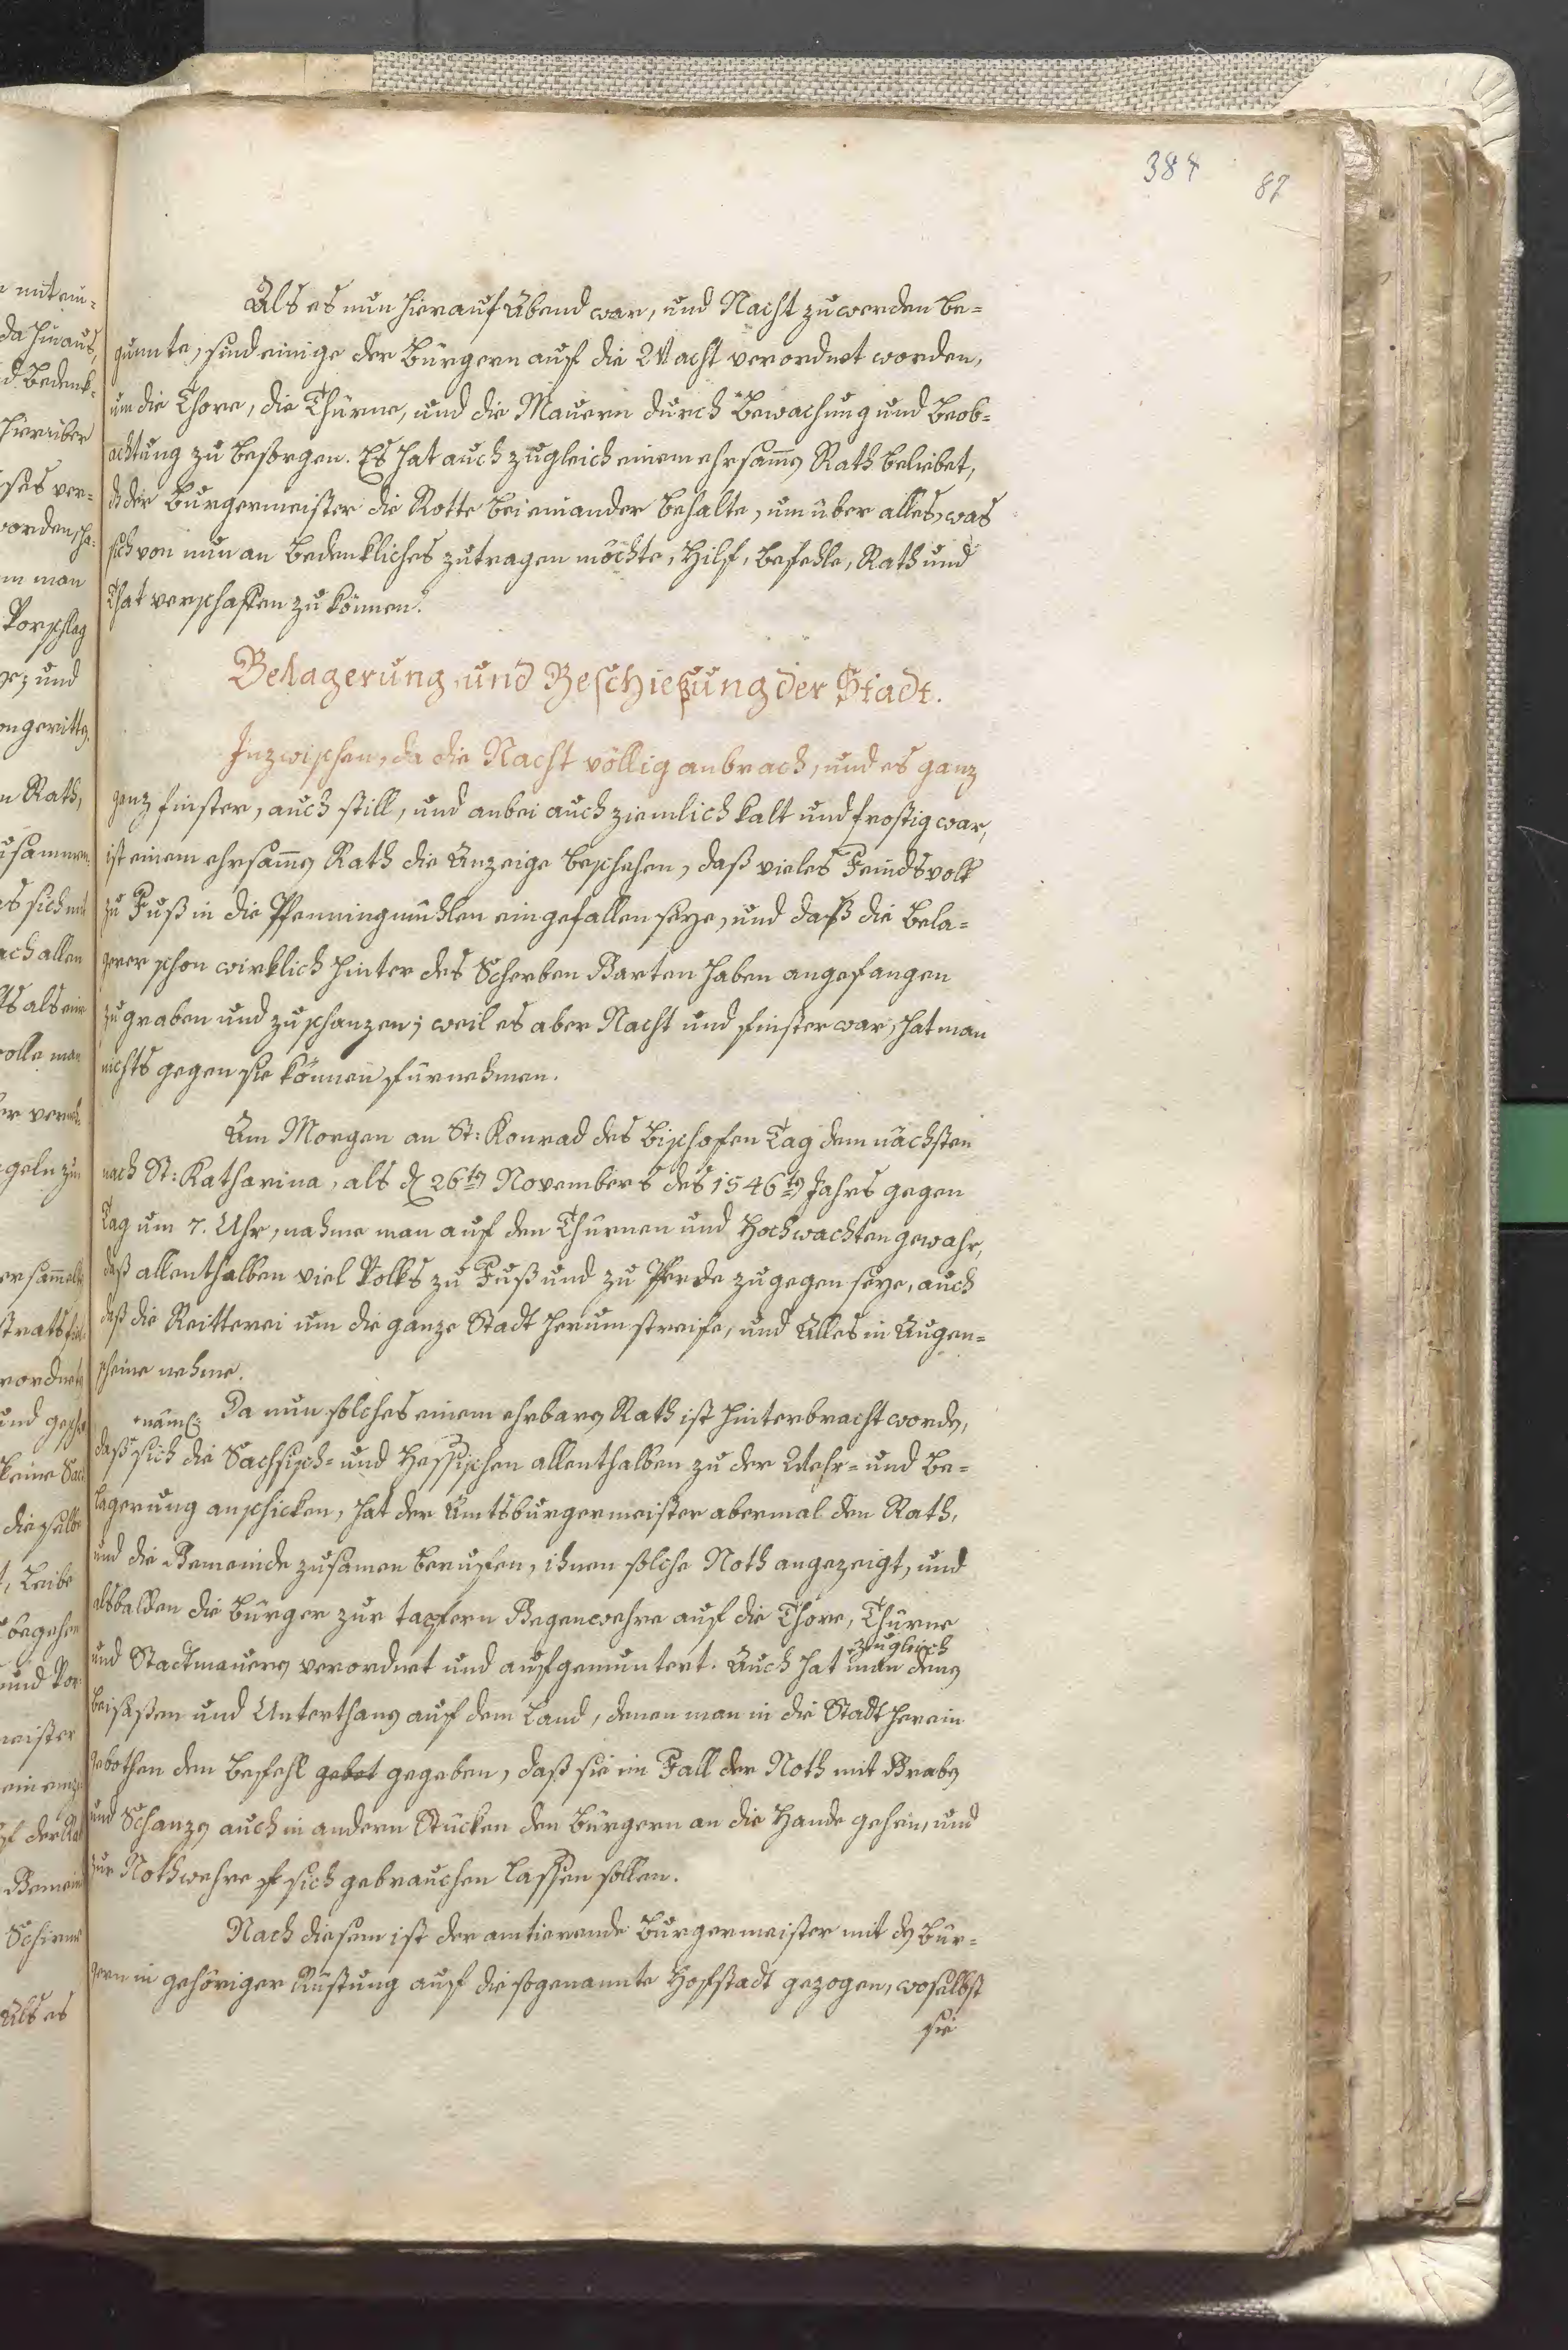 384 87
Als es nun hierauf Abend war, und Nacht zu werden be=
gunnte, sind einige der Bürgern auf die Wacht verordnet worden,
um die Thore, die Thürne, und die Mauern durch Bewachung und Beob=
achtung zu besorgen. Es hat auch zugleich einem ehrsam̅en Rath beliebet,
ds der Burgermeister die Rotte bei einander behalte, um über alles, was
sich von nun an Bedenkliches zutragen möchte, Hilf, Befehle, Rath und
That verschaffen zu können.
Belagerung und Beschießung der Stadt.
Inzwischen, da die Nacht völlig anbrach, und es ganz
ganz finster, auch still, und anbei auch ziemlich kalt und frostig war,
ist einem ehrsam̅en Rath die Anzeige beschehen, daß vieles Feindsvolk
zu Fuß in die Pfenningmühlen eingefallen seye, und daß die Bela=
gerer schon wirklich hinter des Scherben Garten haben angefangen
zu graben und zu schanzen; weil es aber Nacht und finster war, hat man
nichts gegen sie können fürnehmen.
Am Morgen an St: Konrad des Bischofen Tag dem nächsten
nach St: Katharina, als d 26ten Novembers des 1546ten Jahrs gegen
Tag um 7. Uhr, nahme man auf den Thürnen und Hochwachten gewahr,
daß allenthalben viel Volks zu Fuß und zu Pferde zugegen seye, auch
daß die Reitterei um die ganze Stadt herum streife, und Alles in Augen=
scheine nehme.
Da nun solches einem ehrbaren Rath ist hinterbracht worden,
näml:
daß sich die Sachsisch= und Hessischen allenthalben zu der Wehr= und Be=
lagerung anschicken, hat der Amtsburgermeister abermal den Rath,
und die Gemeinde zusamen beruffen, ihnen solche Noth angezeigt, und
alsbalden die Bürger zur tapfern Gegenwehre auf die Thore, Thürne
zugleich
und Stadtmauern verordnet und aufgemuntert. Auch hat man denen
Beisäßen und Unterthanen auf dem Land, denen man in die Stadt herein
gebothen den Befehl gebot gegeben, daß sie im Fall der Noth mit Graben
und Schanzen auch in andern Stücken den Bürgern an die Hande gehen, und
zur Nothwehre sich gebrauchen lassen sollen.
Nach diesem ist der amtierende Burgermeister mit den Bür=
gern in gehöriger Rüstung auf die sogenannte Hofstadt gezogen, woselbst
sie